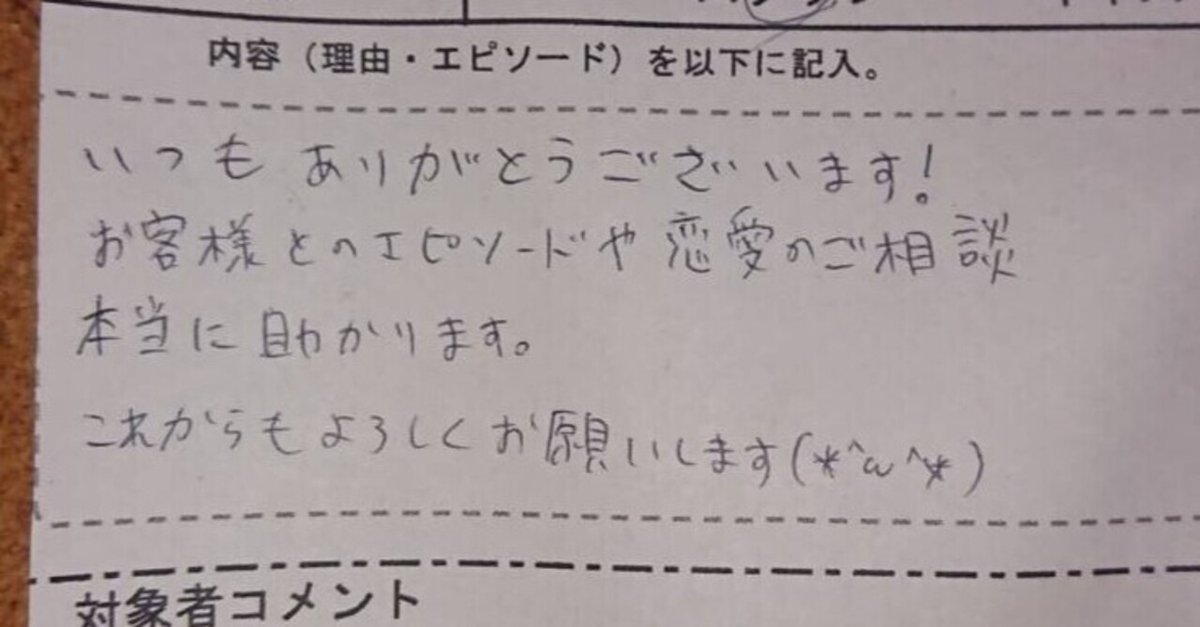 内容（理由・エピソード）を以下に記入。
いつもありがとうございます!
お客様とのエピソードや恋愛のご相談
本当に助かります。
これからもよろしくお願いします(*^ω^*)
対象者コメント